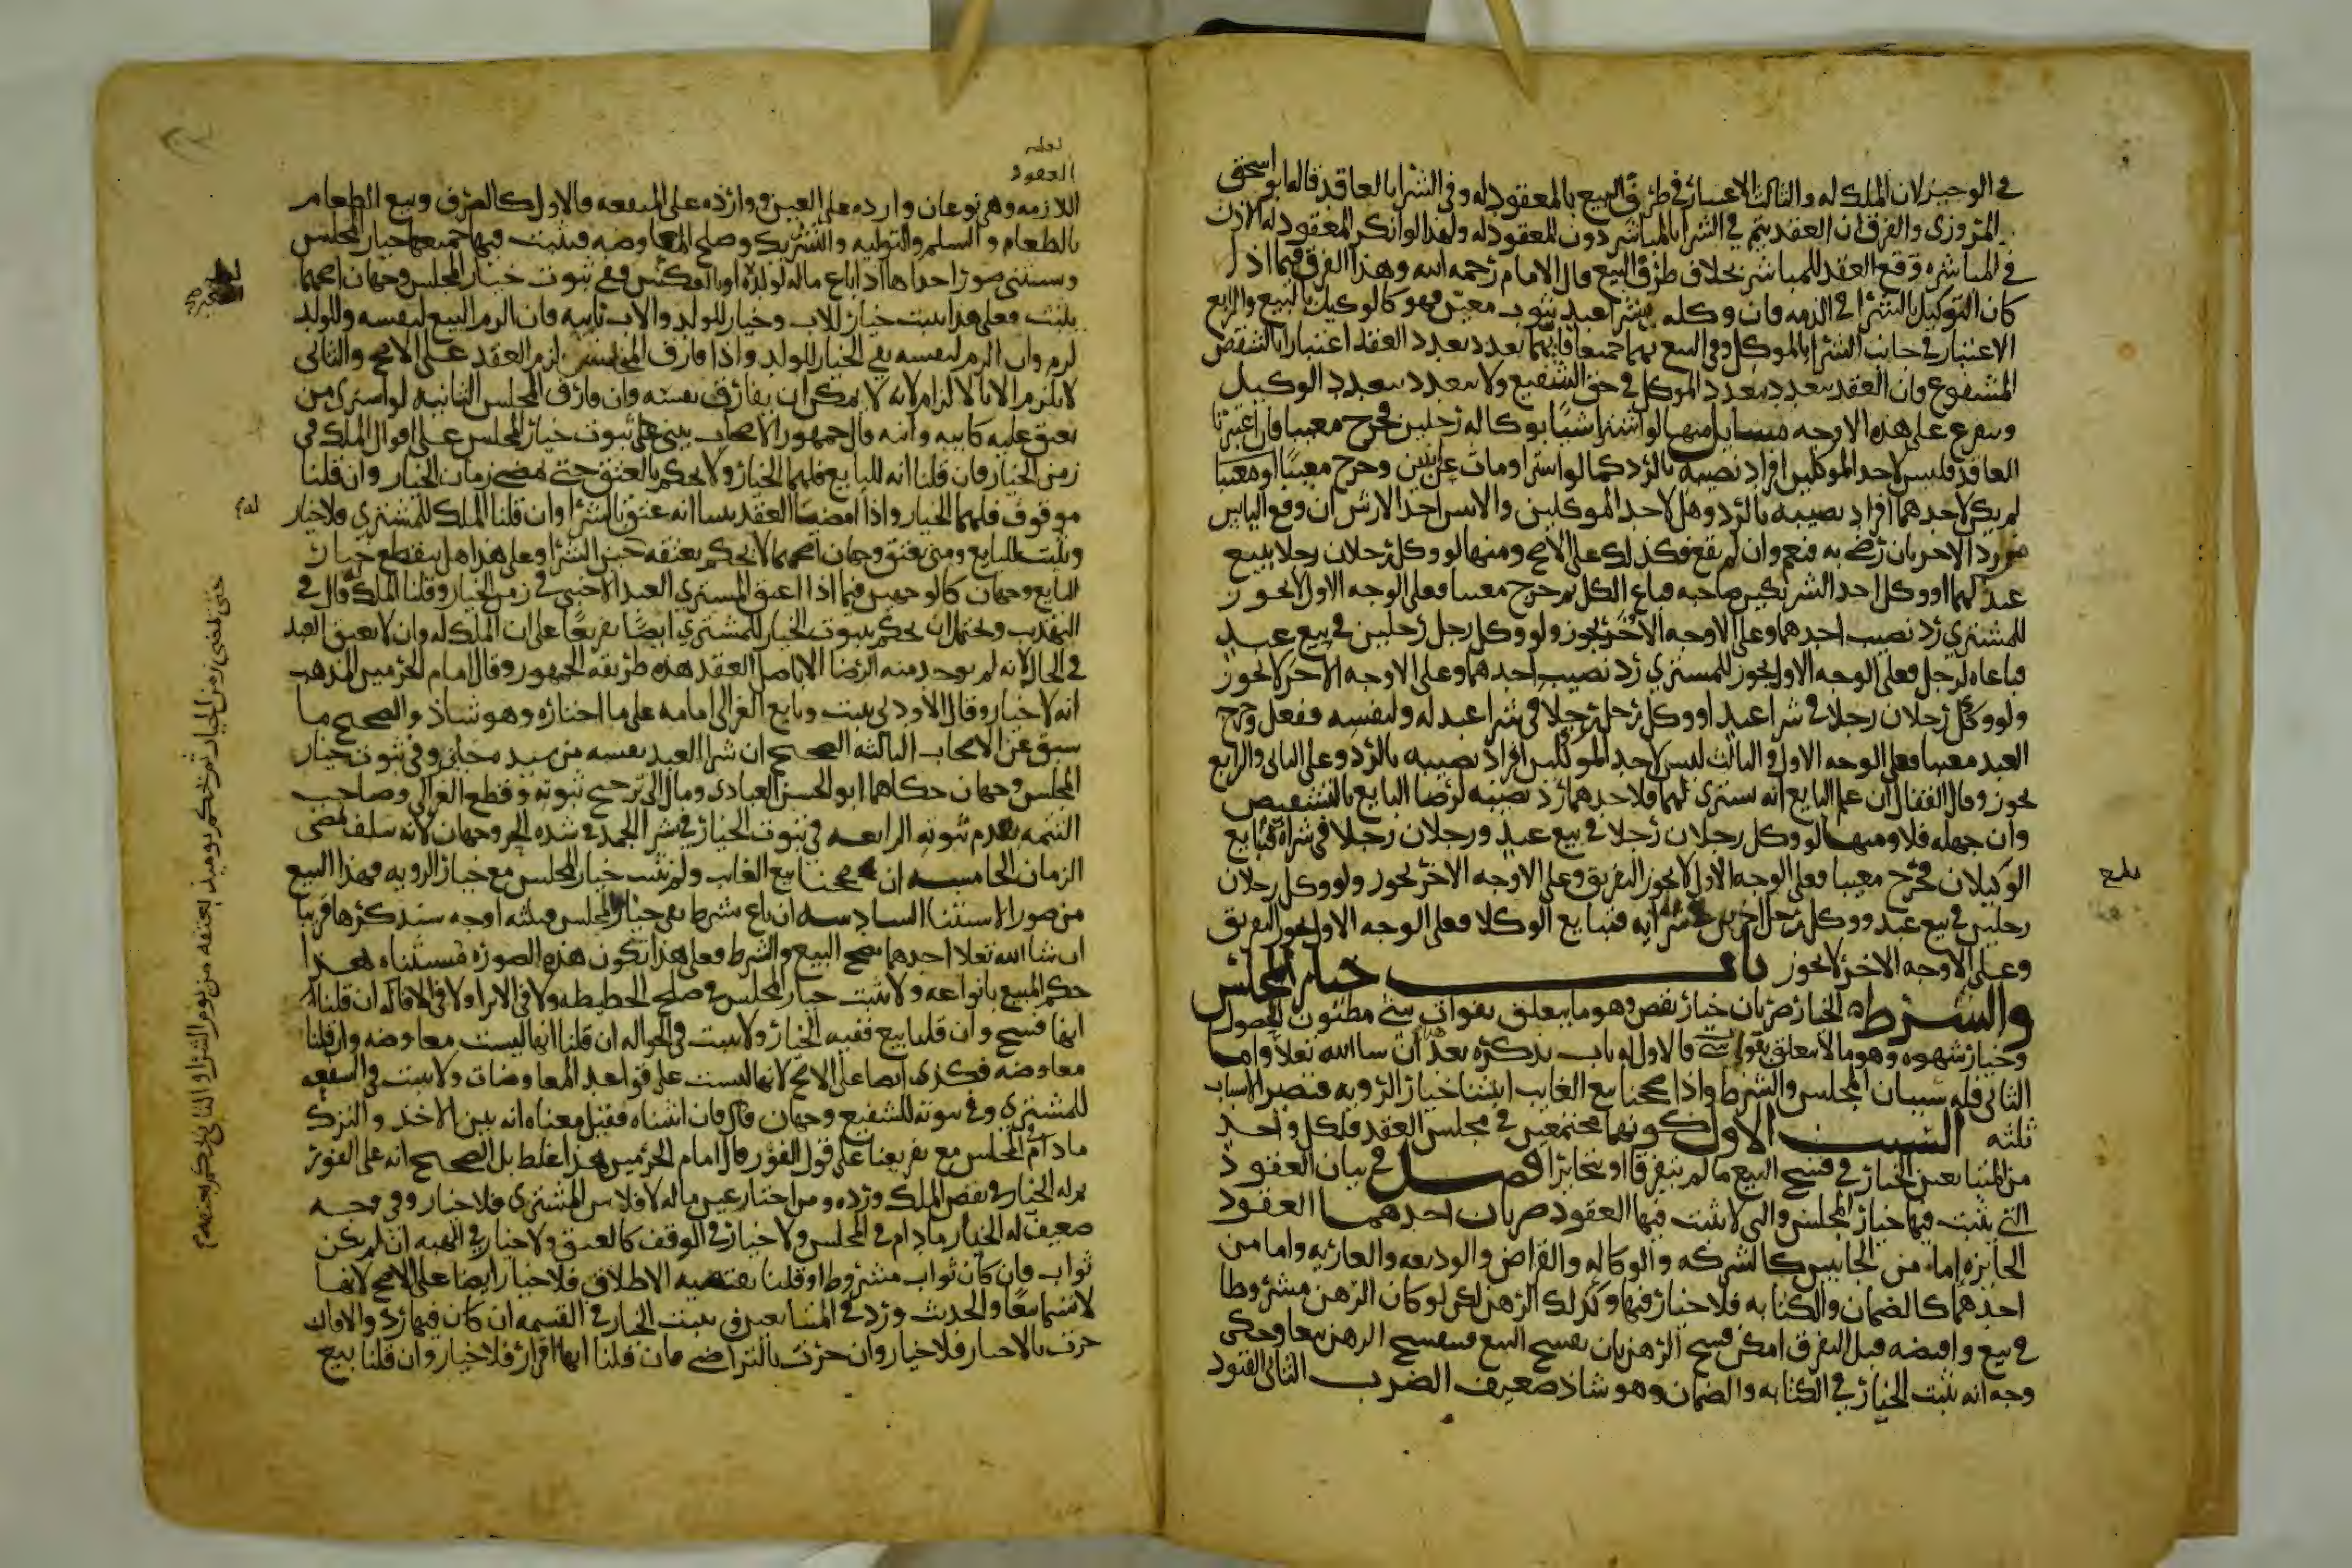 في الوجيز لان الملك له والثالث الاعتبار في طرق البيع بالمعقود له وفي الشرا بالعاقد قاله ابو اسحق
المروزي والفرق ان العقد يتم في الشرا بالمباشر دون المعقود له ولهذا لو انكر المعقود له الاذن
في المباشره وقع العقد للمباشر بخلاف طرق البيع قال الامام رحمه الله وهذا الفرق فيما اذا
كان التوكيل بالشرا في الذمه فان وكله بشرا عبد بثوب معين فهو كالوكيل بالبيع والرابع
الاعتبار في جانب الشرا بالموكل وفي البيع بهما جميعا فايهما تعدد تعدد العقد اعتبارا بالشقص
المشفوع فان العقد يتعدد بتعدد الموكل في حق الشفيع ولا يتعدد بتعدد الوكيل
ويتفرع على هذه الاوجه مسايل منها لو اشترا شيا بوكاله رجلين فخرج معيبا فان اعتبرنا
العاقد فليس لاحد الموكلين افراد نصيبه بالرد كما لو اشترا ومات عن ابنين وخرج معيبا او معيبا
لم يكن لاحدهما افراد نصيبه بالرد وهل لاحد الموكلين والابنين اخذ الارش ان وقع الياس
من رد الاخر بان رضي به فنعم وان لم يقع فكذلك على الاصح ومنها لو وكل رجلان رجلا ببيع
عبد لهما او وكل احد الشريكين صاحبه فباع الكل ثم خرج معيبا فعلى الوجه الاول لا يجوز
للمشتري رد نصيب احدهما وعلى الاوجه الاخر يجوز ولو وكل رجل رجلين في بيع عبد
فباعاه لرجل فعلى الوجه الاول يجوز للمشتري رد نصيب احدهما وعلى الاوجه الاخر لا يجوز
ولو وكل رجلان رجلا في شرا عبد او وكل رجل رجلا في شرا عبد له ولنفسه ففعل وخرج
العبد معيبا فعلى الوجه الاول والثالث ليس لاحد الموكلين افراد نصيبه بالرد وعلى الثاني والرابع
يجوز وقال القفال ان علم البايع انه يشتري لهما فلاحدهما رد نصيبه لرضا البايع بالتشقيص
وان جهله فلا ومنها لو وكل رجلان رجلا في بيع عبد ورجلان رجلا في شراه فتبايع
الوكيلان فخرج معيبا فعلى الوجه الاول لا يجوز التفريق وعلى الاوجه الاخر يجوز ولو وكل رجلان
رجلين في بيع عبد ووكل رجل اخرين في شرايه فتبايع الوكلا فعلى الوجه الاول يجوز التفريق
وعلى الاوجه الاخر لا يجوز باب خيار المجلس
والشرط الخيار ضربان خيار نقص وهو ما يتعلق بفوات شي مظنون الحصول
وخيار شهوه وهو ما لا يتعلق بفوات شي فالاول له باب نذكره بعد هذا ان شا الله تعلا واما
الثاني فله سببان المجلس والشرط واذا صححنا بيع الغايب اثبتنا خيار الرويه فتصير الاسباب
ثلثه السبب الاول كونهما مجتمعين في مجلس العقد فلكل واحد
من المتبايعين الخيار في فسخ البيع ما لم يتفرقا او يتخايرا فصل في بيان العقود
التي يثبت فيها خيار المجلس والتي لا يثبت فيها العقود ضربان احدهما العقود
الجايزه اما من الجانبين كالشركه والوكاله والقراض والوديعه والعاريه واما من
احدهما كالضمان والكتابه فلا خيار فيها وكذلك الرهن لكن لو كان الرهن مشروطا
في بيع واقبضه قبل التفرق امكن فسخ الرهن بان يفسخ البيع فينفسخ الرهن تبعا وحكي
وجه انه يثبت الخيار في الكتابه والضمان وهو شاذ ضعيف الضرب الثاني العقود
لعله
العقود
اللازمه وهي نوعان وارده على العين ووارده على المنفعه فالاول كالصرف وبيع الطعام
بالطعام والسلم والتوليه والتشريك وصلح المعاوضه فيثبت فيها جميعها خيار المجلس
ويستثنى صور احداها اذا باع ماله لولده او بالعكس ففي ثبوت خيار المجلس وجهان اصحهما
يثبت فعلى هذا يثبت خيار للاب وخيار للولد والاب نايبه فان الزم البيع لنفسه وللولد
لزم وان الزم لنفسه بقي الخيار للولد واذا فارق المجلس لزم العقد على الاصح والثاني
لا يلزم الا بالالزام لانه لا يمكن ان يفارق نفسه وان فارق المجلس الثانيه لو اشترى من
يعتق عليه كابيه وابنه قال جمهور الاصحاب يبنى على ثبوت خيار المجلس على اقوال الملك في
زمن الخيار فان قلنا انه للبايع فلهما الخيار ولا يحكم بالعتق حتى يمضي زمان الخيار وان قلنا
موقوف فلهما الخيار واذا امضيا العقد بينا انه عتق بالشرا وان قلنا الملك للمشتري فلا خيار
ويثبت للبايع ومتى يعتق وجهان اصحهما لا يحكم بعتقه حين الشرا وعلى هذا هل ينقطع خيار
البايع وجهان كالوجهين فيما اذا اعتق المشتري العبد الاجنبي في زمن الخيار وقلنا الملك له قال في
التهذيب ويحتمل ان يحكم بثبوت الخيار للمشتري ايضا تفريعا على ان الملك له وان لا يعتق العبد
في الحال لانه لم يوجد منه الرضا الا باصل العقد هذه طريقه الجمهور وقال امام الحرمين المذهب
انه لا خيار وقال الاودني يثبت وتابع الغزالي امامه على ما اختاره وهو شاذ والصحيح ما
سبق عن الاصحاب الثالثه الصحيح ان شرا العبد نفسه من سيده جايز وفي ثبوت خيار
المجلس وجهان حكاهما ابو الحسن العبادي ومال الى ترجيح ثبوته وقطع الغزالي وصاحب
التتمه بعدم ثبوته الرابعه في ثبوت الخيار في شرا الجمد في شده الحر وجهان لانه يتلف بمضي
الزمان الخامسه ان صححنا بيع الغايب ولم نثبت خيار المجلس مع خيار الرويه فهذا البيع
من صور الاستثنا السادسه ان باع بشرط نفي خيار المجلس فثلثه اوجه سنذكرها قريبا
ان شا الله تعلا احدها يصح البيع والشرط فعلى هذا تكون هذه الصوره مستثناه هذا
حكم المبيع بانواعه ولا يثبت خيار المجلس في صلح الحطيطه ولا في الابرا ولا في الاقاله ان قلنا
انها فسخ وان قلنا بيع ففيه الخيار ولا يثبت في الحواله ان قلنا انها ليست معاوضه وان قلنا
معاوضه فكذى ايضا على الاصح لانها ليست على قواعد المعاوضات ولا يثبت في الشفعه
للمشتري وفي ثبوته للشفيع وجهان قال فان اثبتناه فقيل معناه انه بين الاخذ والترك
ما دام في المجلس مع تفريعنا على قول الفور قال امام الحرمين هذا غلط بل الصحيح انه على الفور
ثم له الخيار في نقض الملك ورده ومن اختار عين ماله لافلاس المشتري فلا خيار وفي وجه
ضعيف له الخيار ما دام في المجلس ولا خيار في الوقف كالعتق ولا خيار في الهبه ان لم يكن
ثواب فان كان ثواب مشروط او قلنا يقتضيه الاطلاق فلا خيار ايضا على الاصح لانها
لا تسما بيعا والحديث ورد في المتبايعين ويثبت الخيار في القسمه ان كان فيها رد والا فان
جرت بالاجبار فلا خيار وان جرت بالتراضي فان قلنا انها اقرار فلا خيار وان قلنا بيع
حتى تمضي زمن الخيار ثم نحكم يوميذ بعتقه من يوم الشرا والثاني نحكم بعتقه